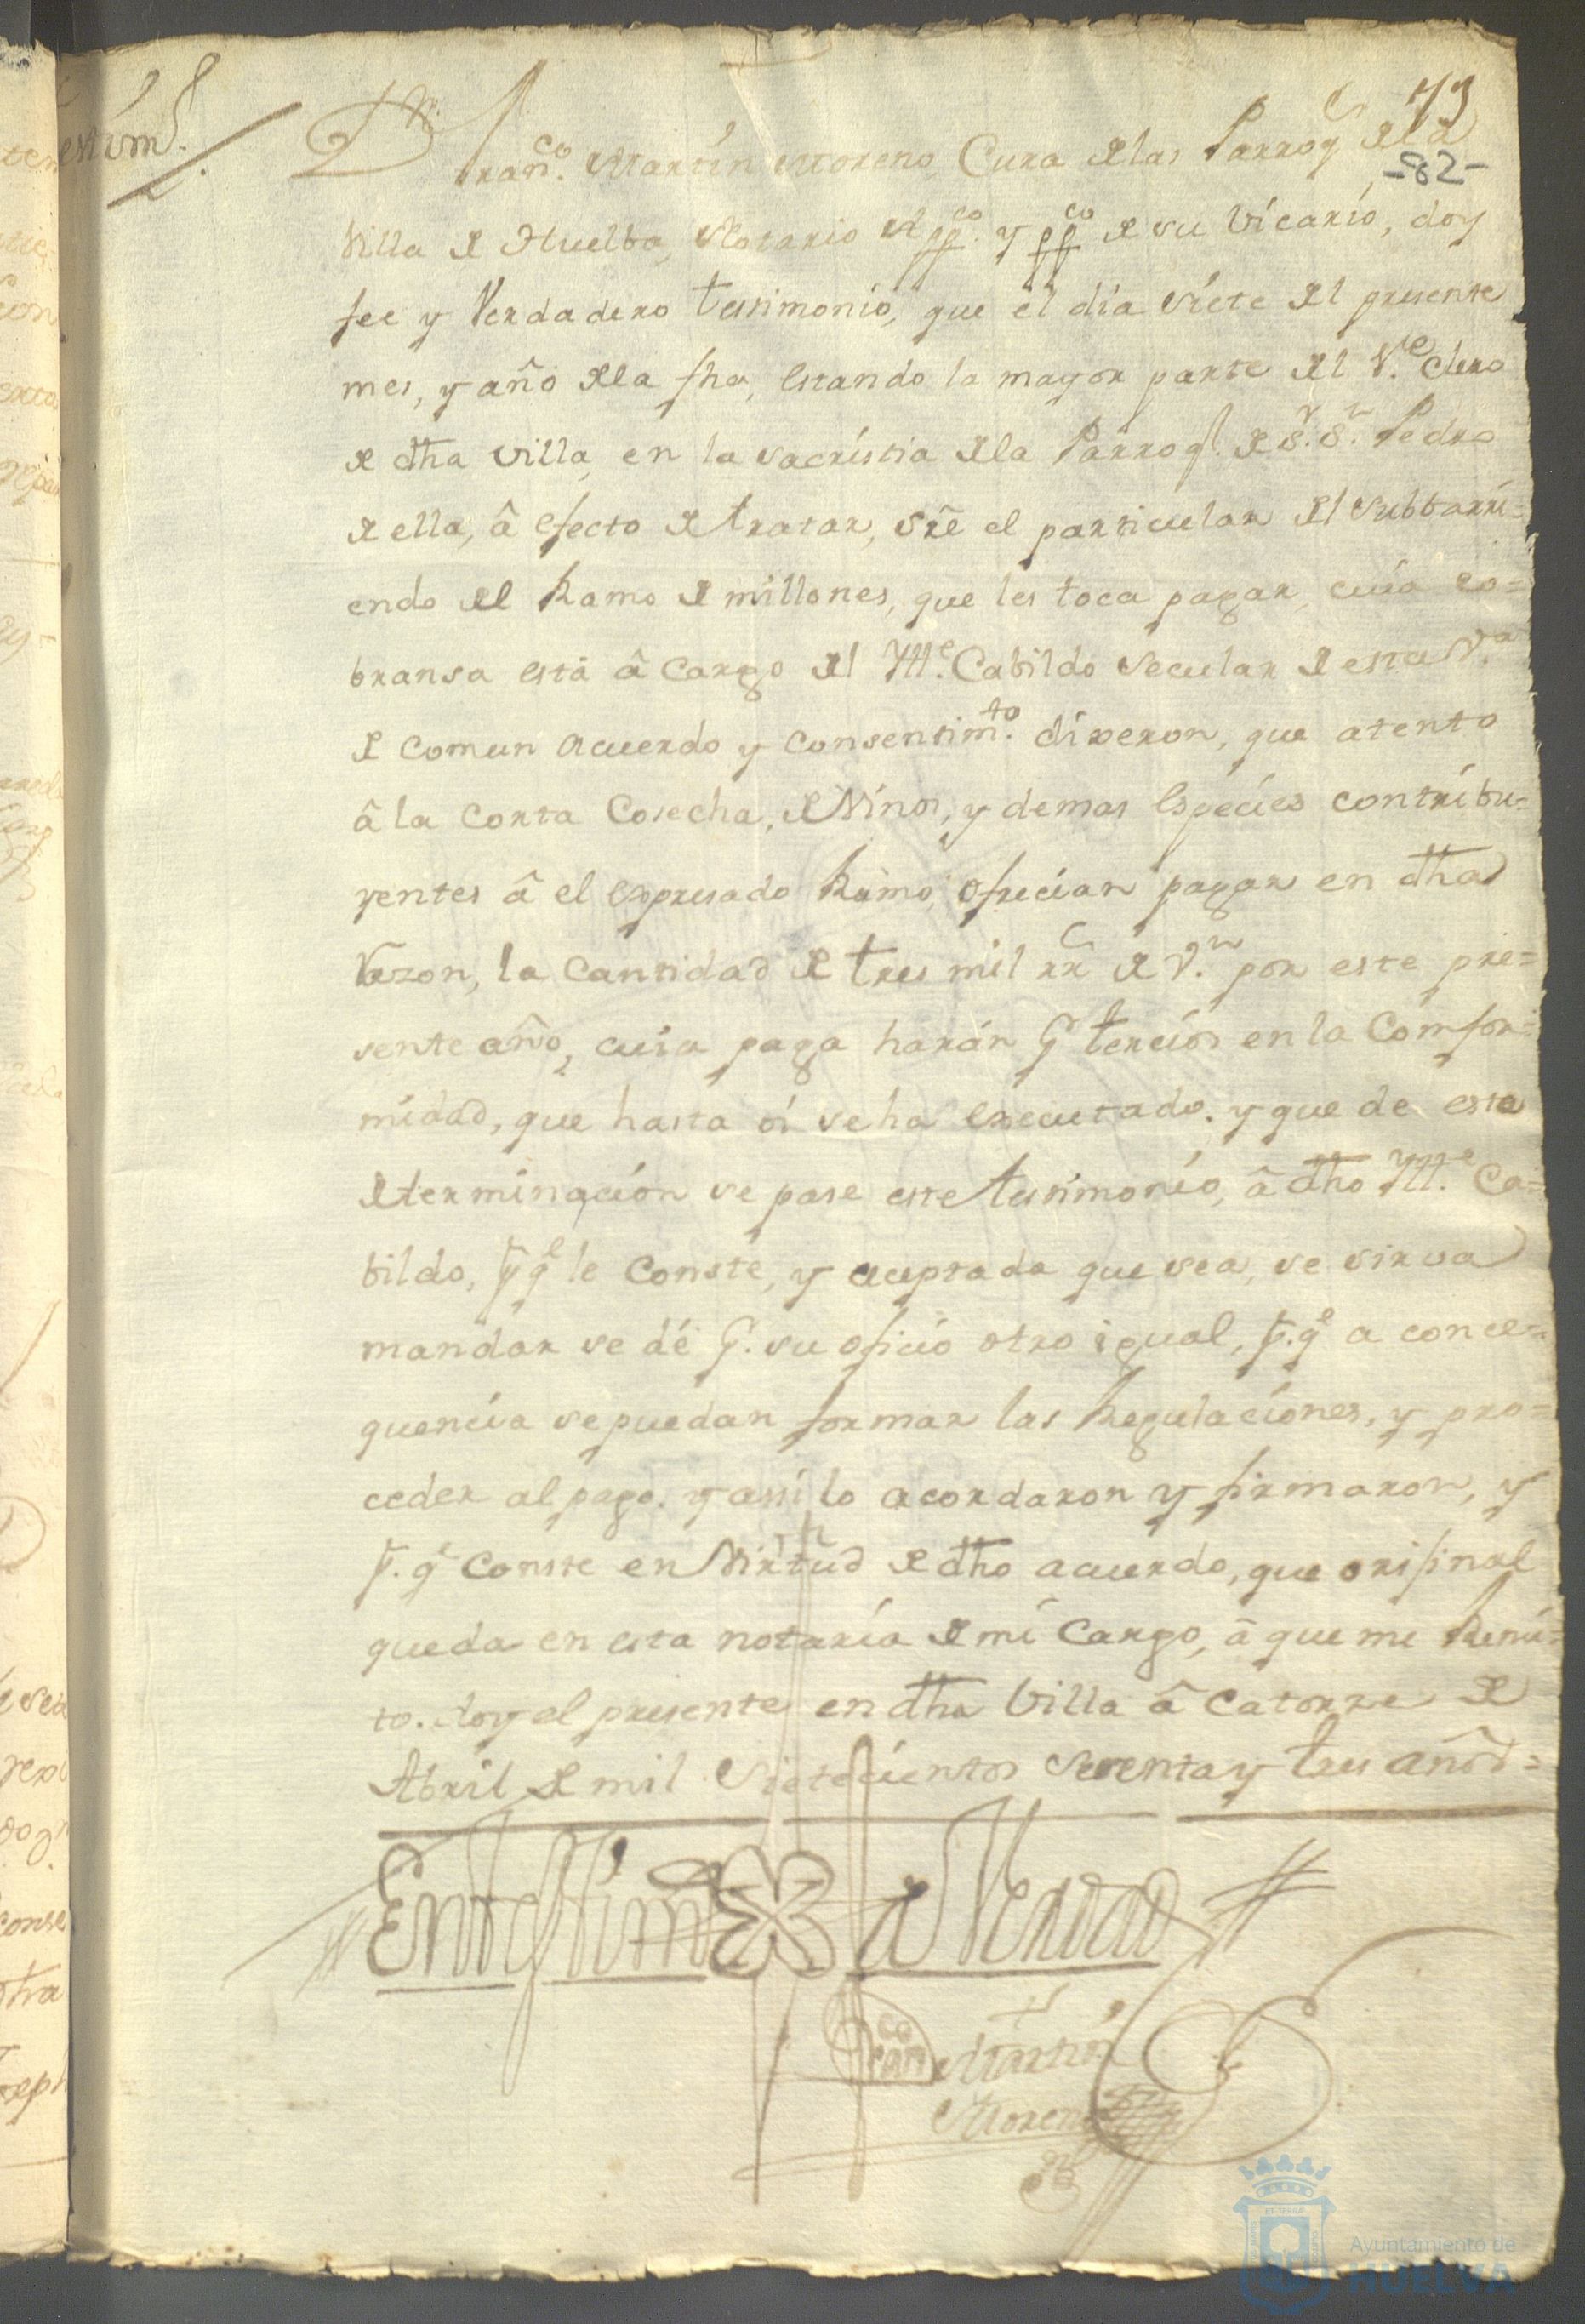 73
-82-
Dn Franco. Martín Moreno, Cura de las Parroqs de la
Villa de Huelba, Notario Appco. y ppco de su Vicario, doy
fee y Verdadero testimonio, que el día siete del presente
mes, y año de la fha, estando la mayor parte del Ve. Clero
de dha villa, en la sacristia de la Parroql. de Sr. Sn. Pedro
de ella, â efecto de tratar, sre el particular del subbarri=
endo del Ramo de millones, que les toca pagar, cuia co=
bransa está â Cargo del Ille. Cabildo secular de esta Va.
de comun acuerdo y consentimto. dixeron, que atento
â la corta Cosecha, de Vinos, y demas Espécies contribu=
yentes â el expresado Ramo, ofrecian pagar en dha
Razon, la cantidad de tres mil rrs de Vn. por este pre=
sente año, cuia paga harán Pr tercios en la Comfor=
midad, que hasta oí se ha executado. y que de esta
determinación se pase este testimonio, â dho Ille. Ca=
bildo, pa qe le Conste, y aceptada que sea, se sirva
mandar se dé Pr. su oficio otro igual, pa. qe a conce=
quencia se puedan formar las Regulaciones, y pro=
ceder al pago. y assi lo acordaron y firmaron, y
pa. qe Conste en Virtud de dho acuerdo, que original
queda en esta notaría de mi Cargo, â que me Remi=
to. doy el presente en dha Villa â Catorze de
Abril de mil Sietecientos setenta y tres años=
En testimo de Verdad
Franco Martín
Moreno
Ayuntamiento de
HUELVA